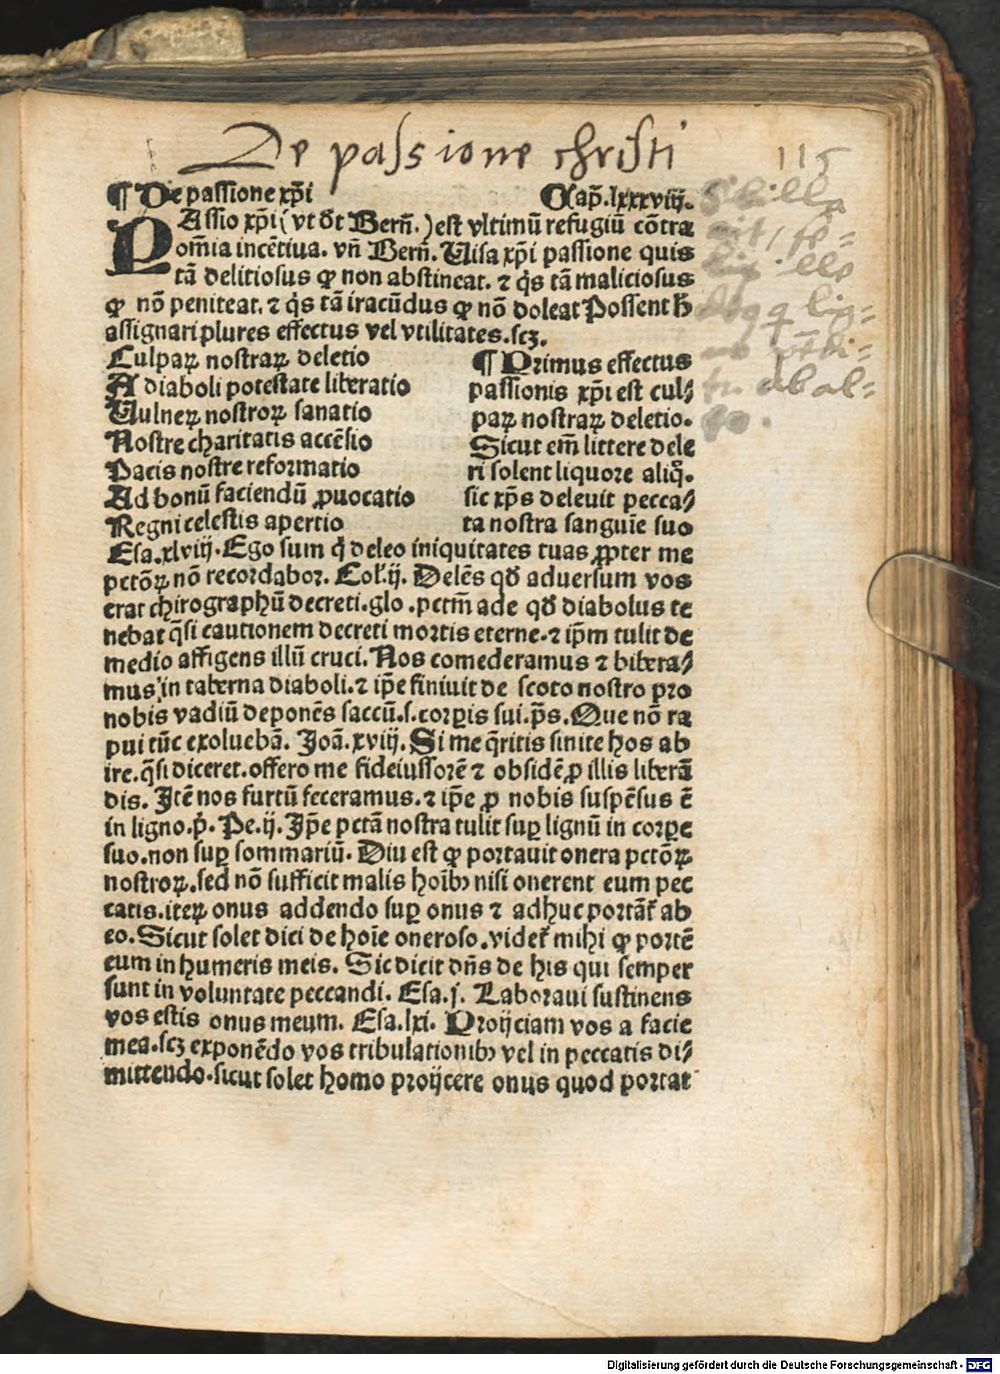 De passione christi 115
¶ De passione xp̄i Cap̄. lxxxviij.
PAssio xp̄i (vt dt̄ Bern̄.) est vltimū refugiū cōtra
om̄ia incētiua. vn̄ Bern̄. Uisa xp̄i passione quis
tā delitiosus qꝫ non abstineat. ⁊ q̇s tā maliciosus
qꝫ nō peniteat. ⁊ q̇s tā iracūdus qꝫ nō doleat Possent ħ
assignari plures effectus vel vtilitates. scꝫ.
Culpaꝝ nostraꝝ deletio
A diaboli potestate liberatio
Uulneꝝ nostroꝝ sanatio
Nostre charitatis accēsio
Pacis nostre reformatio
Ad bonū faciendū ꝓuocatio
Regni celestis apertio
¶ Primus effectus
passionis xp̄i est cul⸗
paꝝ nostraꝝ deletio.
Sicut em̄ littere dele
ri solent liquore aliq̄.
sic xp̄s deleuit pecca⸗
ta nostra sanguīe suo
Esa. xlviij. Ego sum q̇ deleo iniquitates tuas ꝓpter me
pctōꝝ nō recordabor. Col̓. ij. Delēs qd̄ aduersum vos
erat chirographū decreti. glo. pctm̄ ade qd̄ diabolus te
nebat q̄si cautionem decreti mortis eterne. ⁊ ip̄m tulit de
medio affigens illū cruci. Nos comederamus ⁊ bibera⸗
mus in taberna diaboli. ⁊ ip̄e finiuit de scoto nostro pro
nobis vadiū deponēs saccū. s. corꝑis sui. p̄s. Que nō ra
pui tūc exoluebā. Joā. xviij. Si me q̄ritis sinite hos ab
ire. q̄si diceret. offero me fideiussorē ⁊ obsidē ꝓ illis liberā
dis. Jtē nos furtū feceramus. ⁊ ip̄e ꝓ nobis suspēsus ē
in ligno. p̄. Pe. ij. Jp̄e pctā nostra tulit suꝑ lignū in corꝑe
suo. non suꝑ sommariū. Diu est qꝫ portauit onera pctōꝝ
nostroꝝ. sed nō sufficit malis hoībꝫ nisi onerent eum pec
catis. iteꝝ onus addendo suꝑ onus ⁊ adhuc portāt̄ ab
eo. Sicut solet dici de hoīe oneroso. videt̄ mihi qꝫ portē
eum in humeris meis. Sic dicit dn̄s de his qui semper
sunt in voluntate peccandi. Esa. j. Laboraui sustinens
vos estis onus meum. Esa. lxi. Proijciam vos a facie
mea. scꝫ exponēdo vos tribulationibꝫ vel in peccatis di⸗
mittendo. sicut solet homo proijcere onus quod portat
ab al=
Digitalisierung gefördert durch die Deutsche Forschungsgemeinschaft - DFG